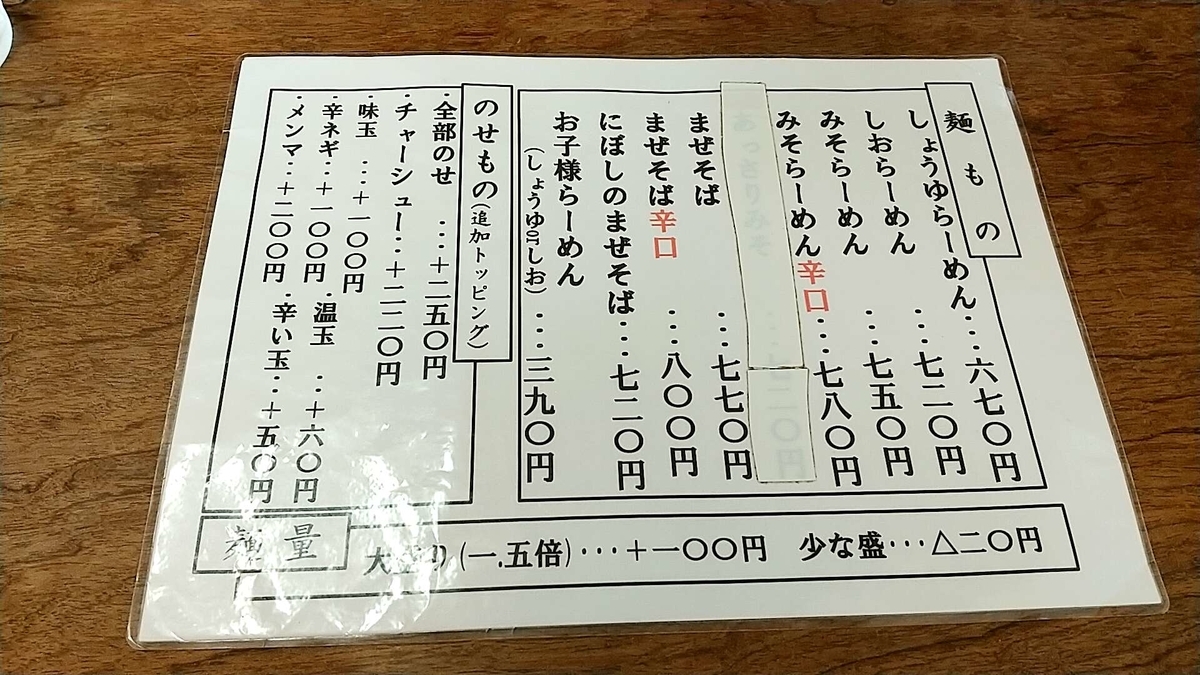 麺もの
しょうゆらーめん・・・・六七〇円
しおらーめん・・・七二〇円
みそらーめん・・・七五〇円
みそらーめん辛口・・・・七八〇円
あっさりみそ
まぜそば・・・七七〇円
まぜそば辛口・・・八〇〇円
にぼしのまぜそば・・・・七二〇円
お子様らーめん
(しょうゆorしお)・・・・三九〇円
のせもの(追加トッピング)
・全部のせ・・・+二五〇円
・チャーシュー・・+二二〇円
・味玉・・・+一〇〇円
・辛ネギ・・+一〇〇円 ・温玉・・+六〇円
・メンマ・・+二〇〇円 ・辛い玉・・+五〇円
麺量
大盛り(一.五倍)・・・+一〇〇円 少な盛・・・△二〇円